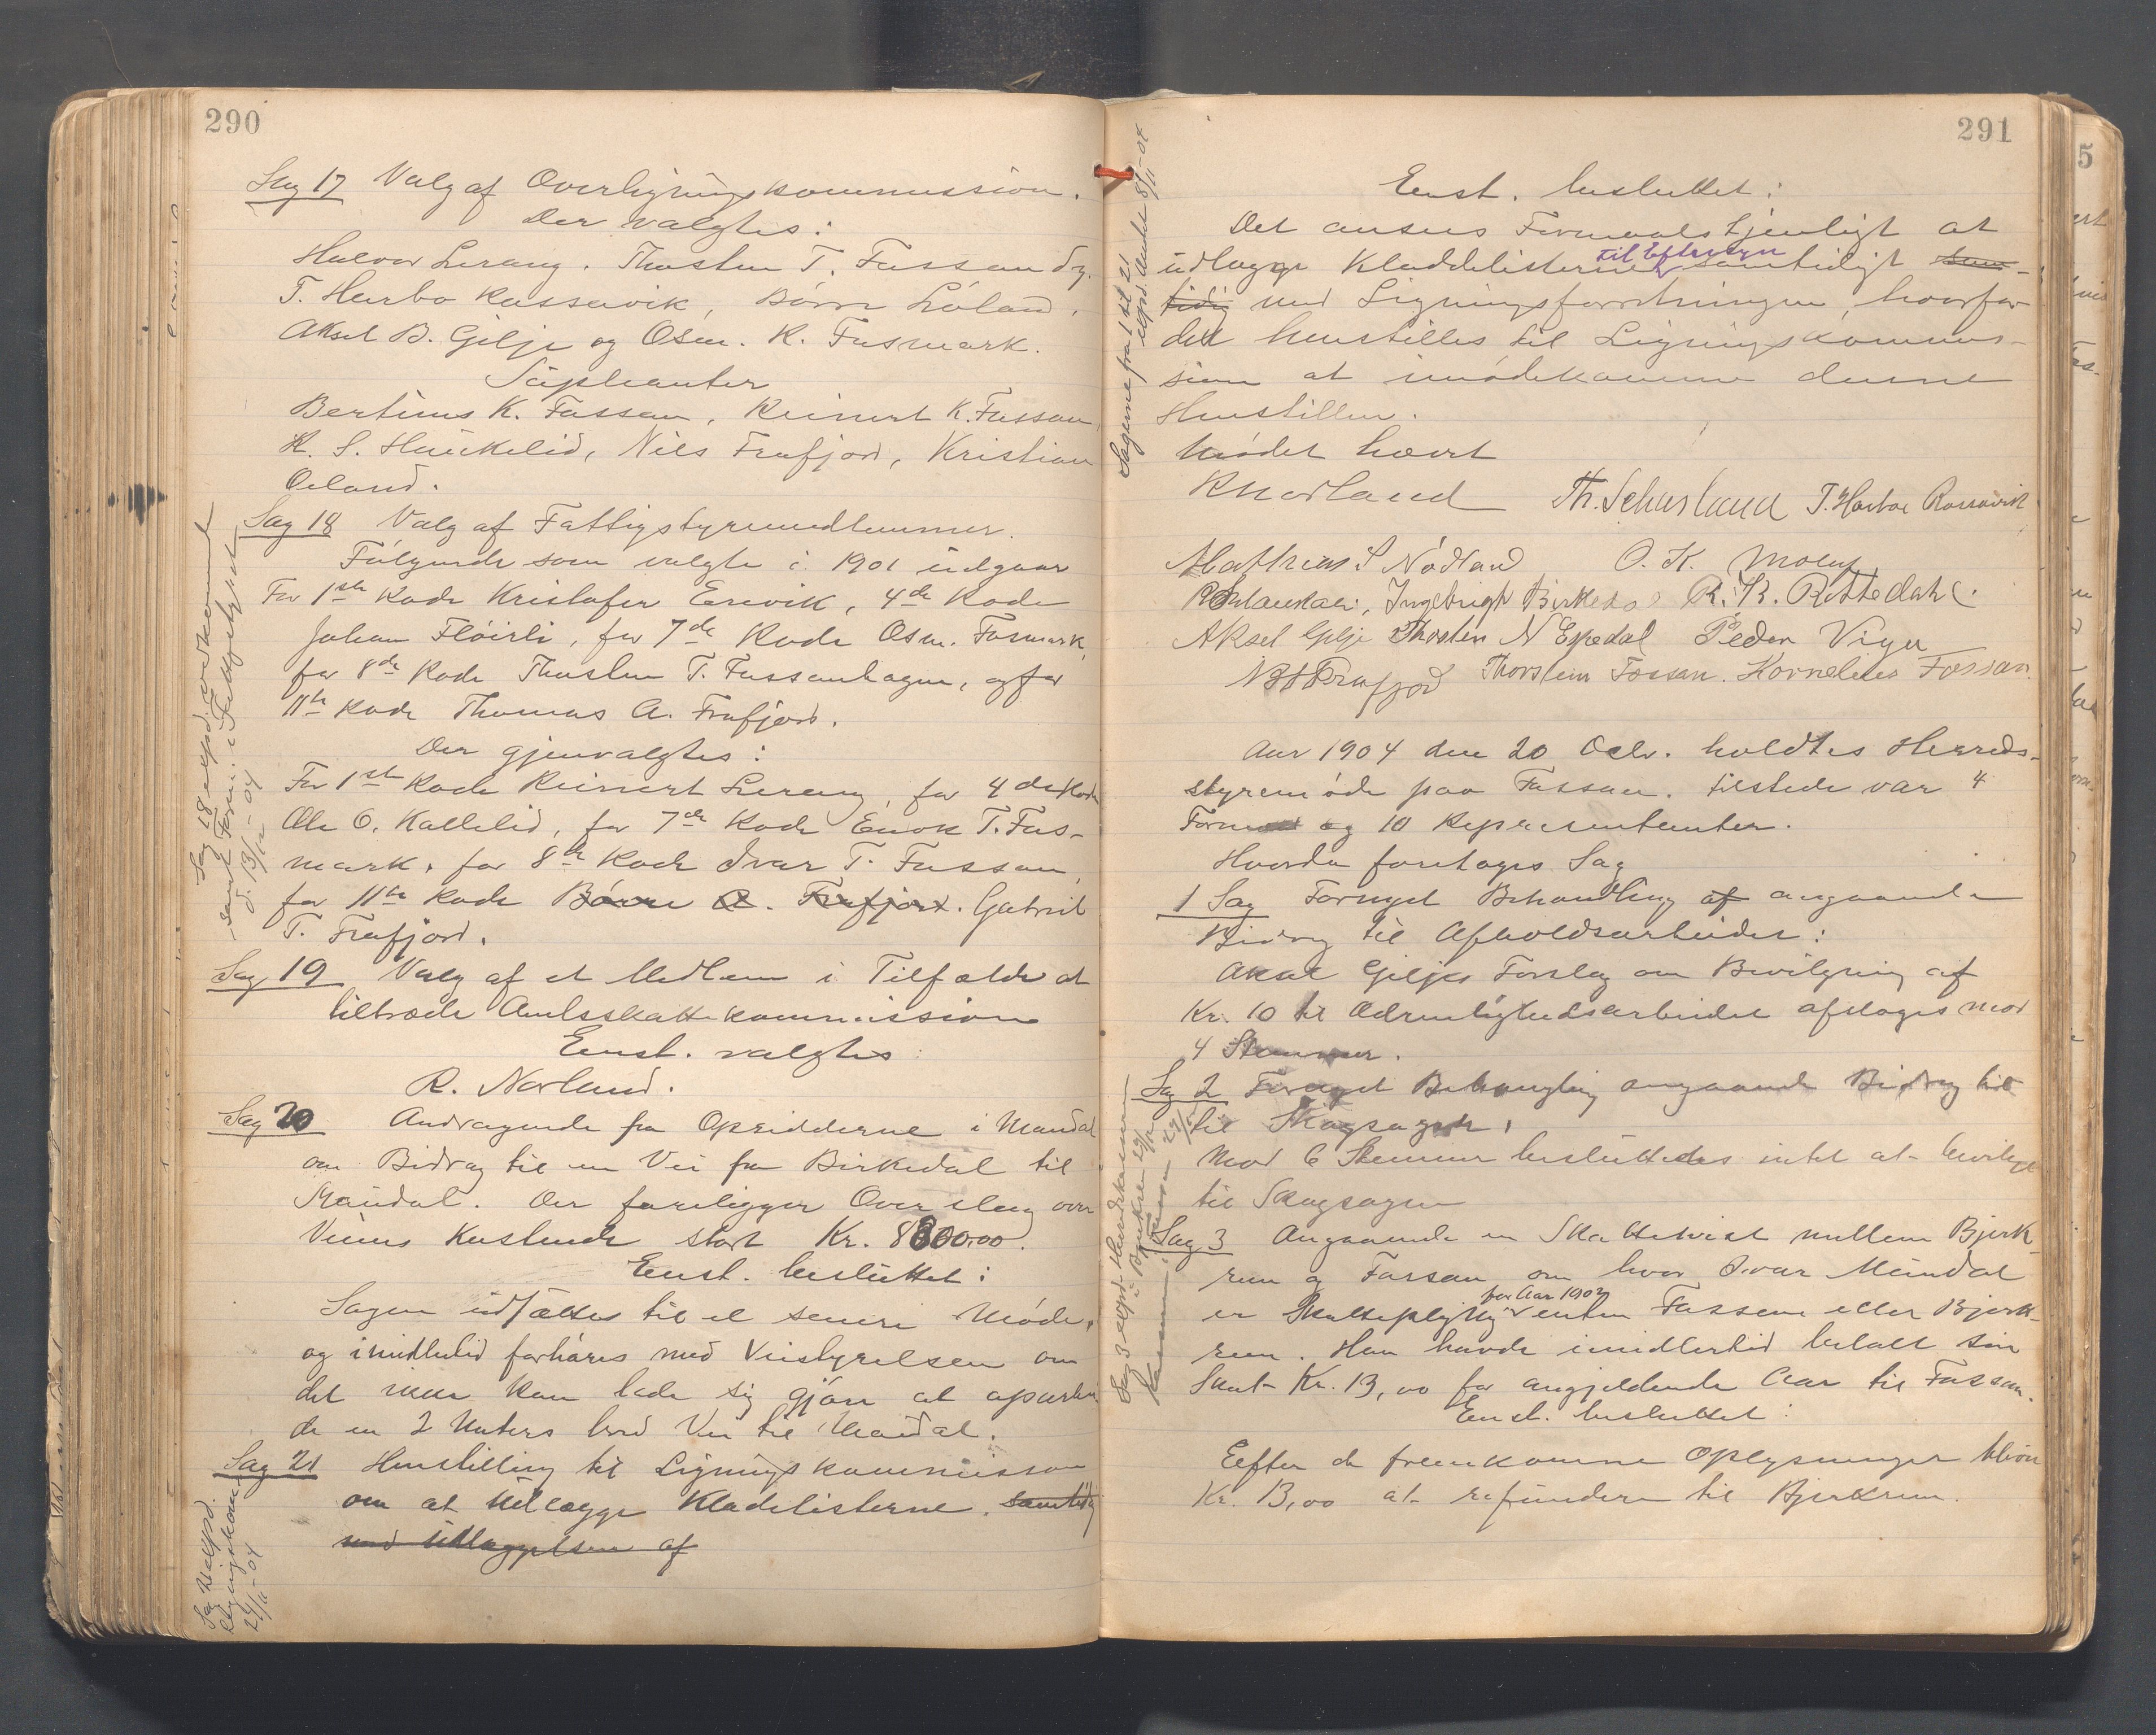 290
Sag 17 Valg af Overligningskommission.
Der valgtes:
Halvor Lerang. Thosten T. Fossan dy.
T. Harbo Rossavik, Børre Løland,
Aksel B. Gilje og Osm. K. Fosmark.
Supleanter
Bertinus K. Fossan, Reinert K. Fossan
K. S. Haukelid, Nils Frafjord, Kristian
Øeland.
Sag 18 Valg af Fattigstyremedlemmer.
Følgende som valgte i 1901 udgaar
For 1ste Rode Kristofer Eievik, 4de Rode
Johan Fløirli, for 7de Rode Osm. Fosmark,
for 8de Rode Thosten T. Fossanhagen, og for
11te Rode Thomas A. Frafjord.
Der gjenvalgtes:
For 1ste Rode Reinert Lerang, for 4de Rode
Ole O. Kallelid, for 7de Rode Enok T. Fos-
mark, for 8de Rode Ivar T. Fossan,
for 11te Rode Børre O. Frafjord. Gabriel
T. Frafjord.
Sag 19 Valg af et Medlem i Tilfælde at
tiltræde Amtsskattekommission
Enst. valgtes:
R. Norland.
Sag 20 Andragende fra Opsidderne i Maudal
om Bidrag til en Vei fra Birkedal til
Maudal. Der foreligger Overslag over
Veiens Kostende stort Kr. 8800,00.
Enst. besluttet:
Sagen udsættes til et senere Møde,
og imidlertid forhøres med Veistyrelsen om
det ikke kan lade sig gjøre at oparbei-
de en 2 Meters bred Vei til Maudal.
Sag 21 Henstilling til Ligningskommission
om at udlægge Kladelisterne. samtidig
med Udlæggelsen af
Sag 18 expd. vedkommende
samt Form. i Fattigstyret
d. 13/12-04
Sag 21 expd.
Ligningskom.
24/11-04
291
Enst. besluttet:
Det ansees Formaalstjenligt at
udlægge Kladdelisterne til Eftersyn samtidigt sam-
tidig med Ligningsforretningen, hvorfor
det henstilles til Ligningskommis-
sion at imødekomme denne
Henstillen.
Mødet hævet
R Norland Th. Schusland T. Harboe Rossavik
Mathias S Nødland O. K. Molaug
Ingebrigt Birkeda R. K. Rettedahl.
Aksel Gilje Thosten N Espedal Peder Viger
N B Frafjord Thorstein Fossan. Kornelius Fossan.
Aar 1904 den 20 Octr. holdtes Herreds-
styremøde paa Fossan. tilstede var 4
Formæ og 10 Repræsentanter.
Hvorda foretoges Sag
1 Sag Fornyet Behandling af angaaende
Bidrag til Afholdsarbeidet:
Aksel Giljes Forslag om Bevilgning af
Kr. 10 til Ædrueligheds­arbeidet afsloges mod
4 Stemmer.
Sag 2 Fornyet Behandling angaaende Bidrag til
til Skogsagen,
Mod 6 Stemmer besluttedes intet at bevilge
til Skogsagen
Sag 3 Angaaende en Skattetvist mellem Bjerk-
reim og Fossan om hvor Ivar Maudal
er Skattepligtig for Aar 1902 enten Fossan eller Bjerk-
reim. Han havde imidlertid betalt sin
Skat Kr. 13,00 for angjeldende Aar til Fossan.
Enst. besluttet:
Eefter de fremkomne Oplysninger bliver
Kr. 13,00 at refundere til Bjerkreim.
Sagerne fra 1 til 21
expd. Amtet 8/11-04
Sag 3 expd. Herredskasserer